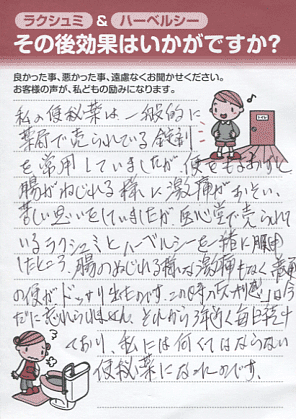 ラクシュミ & ハーベルシー
その後効果はいかがですか?
良かった事、悪かった事、遠慮なくお聞かせください。
お客様の声が、私どもの励みになります。
私の便秘薬は一般的に
薬局で売られている錠剤
を常用していましたが、便をもよおすと
腸がねじれる様に激痛がおそい、
苦しい思いをしていましたが、医心堂で売られて
いるラクシュミとハーベルシーを一緒に服用
したところ、腸のねじれる様な激痛もなく
の便がドッサリ出たのです。この時の爽快感は今
だに忘れられません。それから3年近く毎日
ており、私には何くてはならない
便秘薬になったのです。